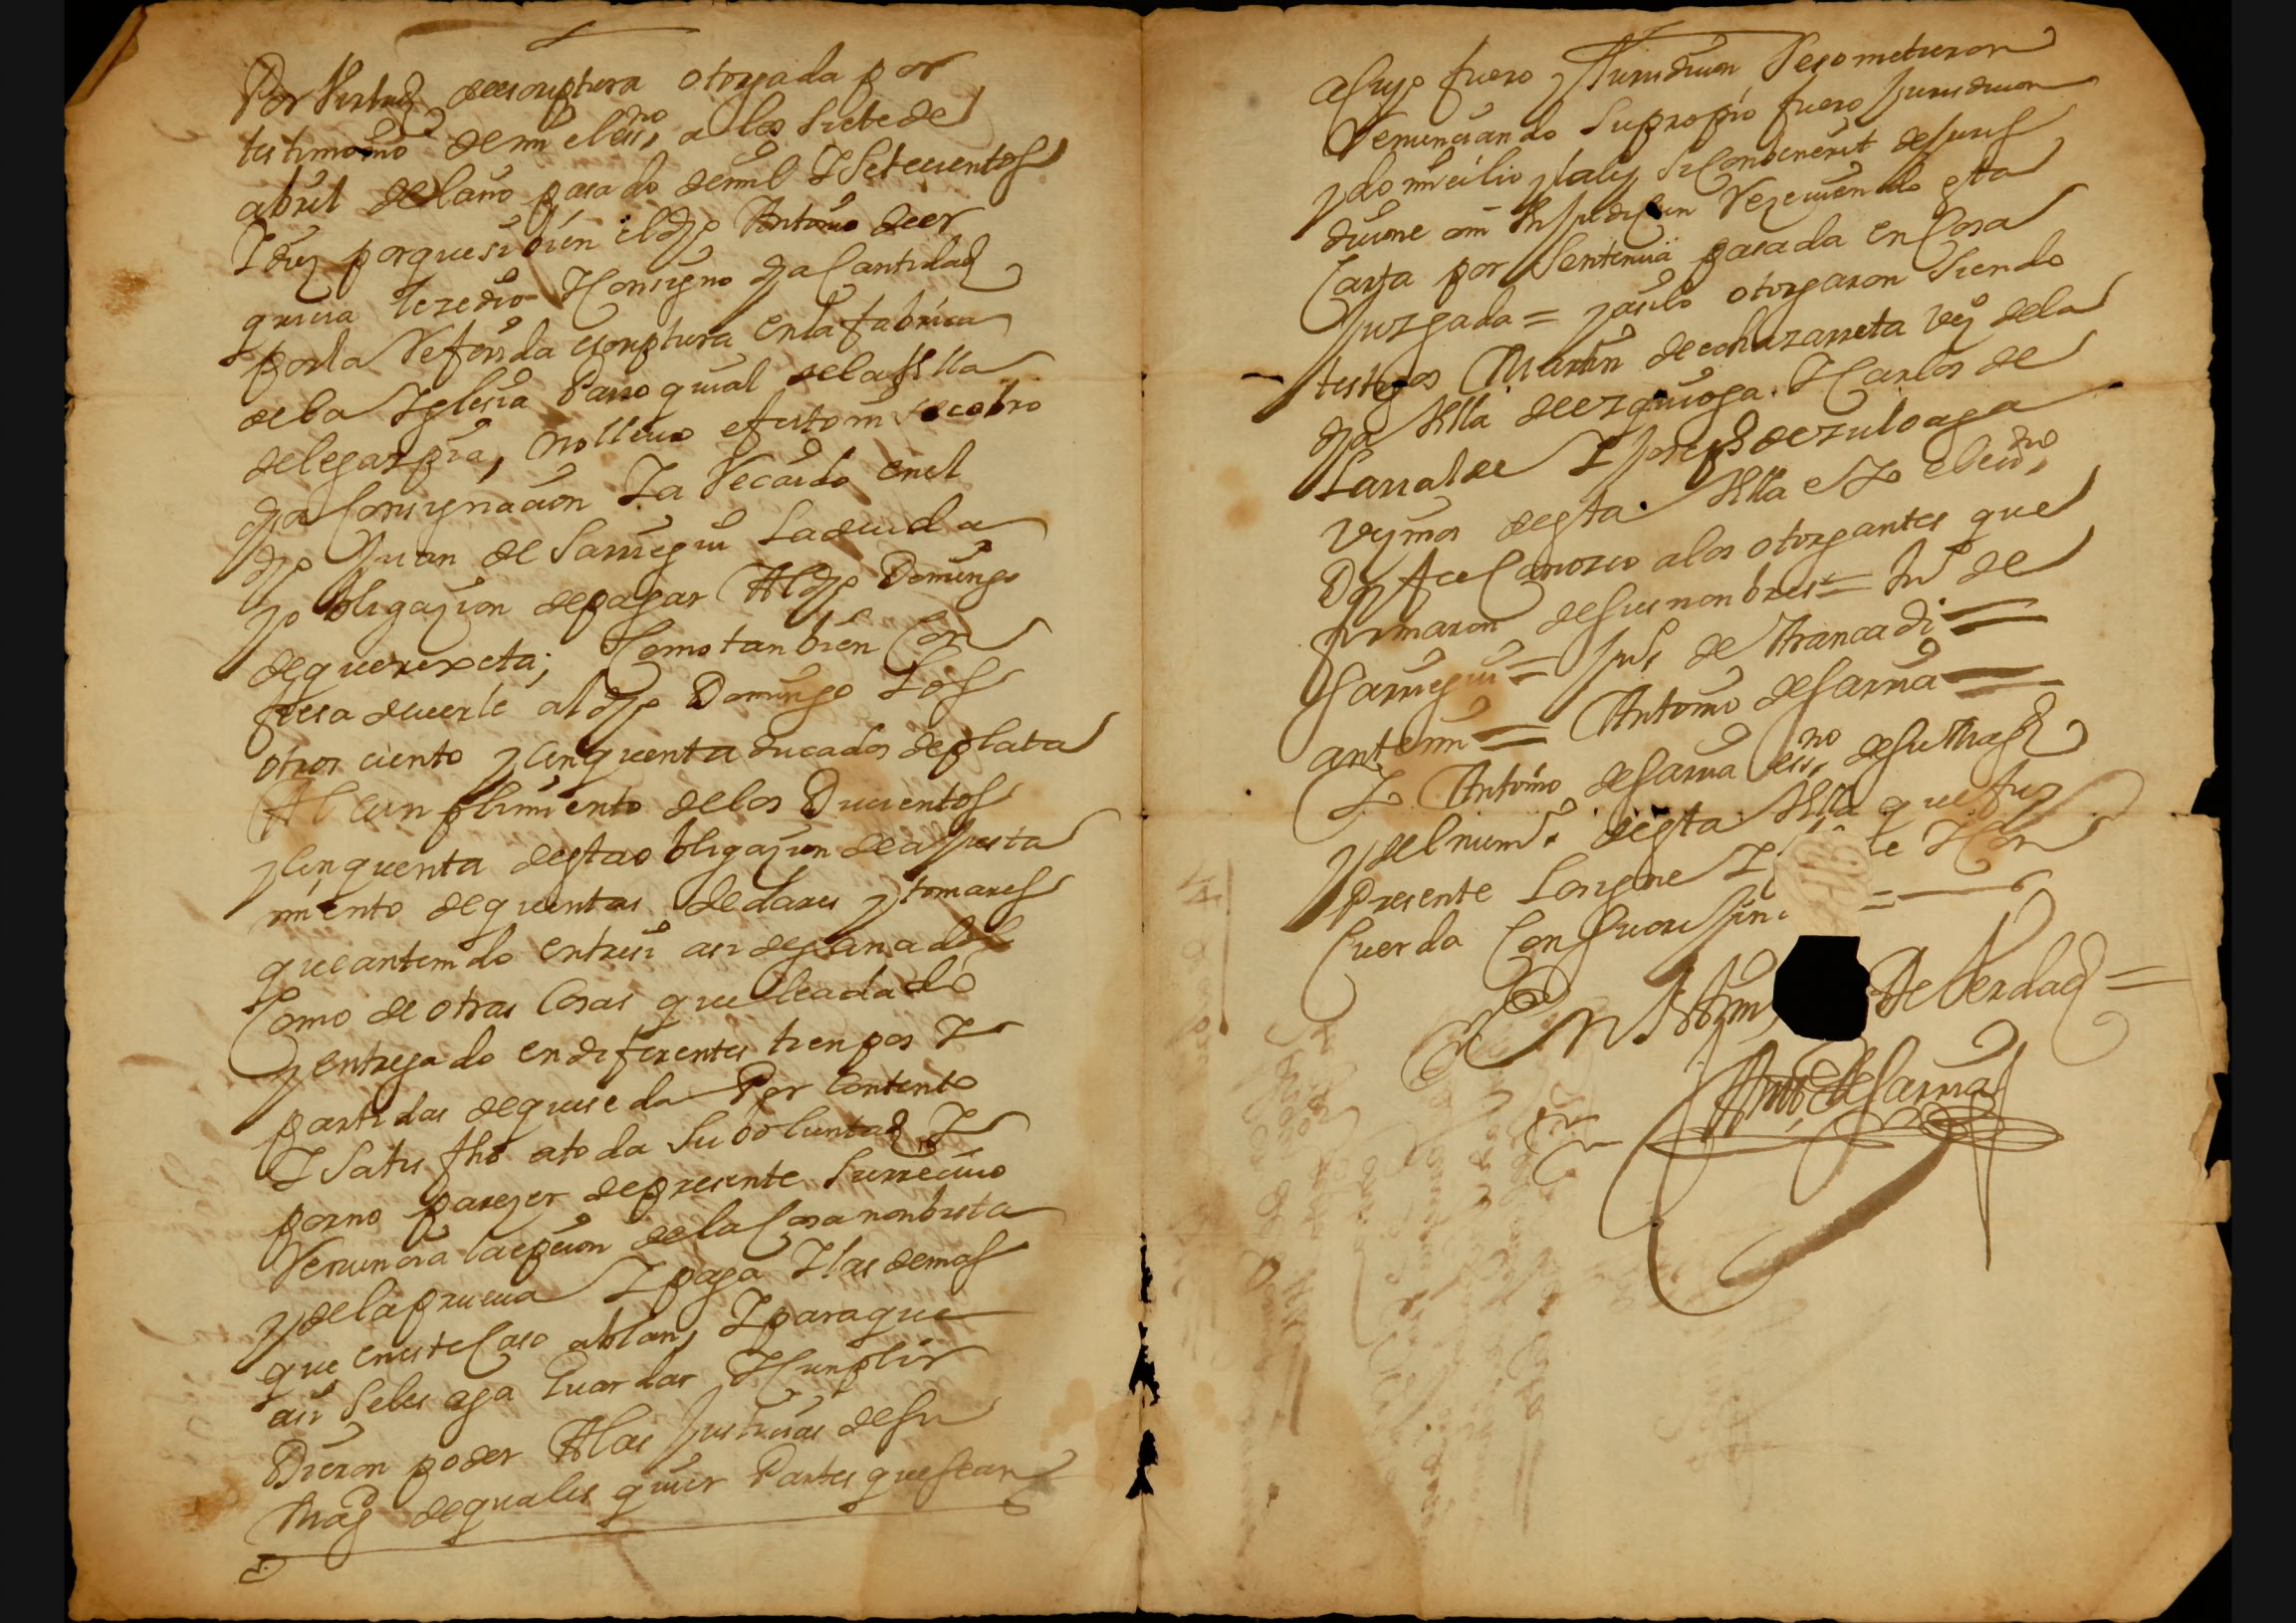 Por Virtud de escriptura otorgada por
testimonio de mi el essno, a los siete de
abril del año pasado de mil Y Setecientos
Y diez porque si bien el dho Antonio de er
quicia le zedio Y Consigno dha Cantidad
por la Referida escriptura en la fabrica
de la Yglesia Parroquial de la Villa
de legazpia, no lleuo efecto ni se cobro
dha Consignacion Y a Recaido en el
dho Juan de Sarriegui La deuda
y obligazion de pagar Al dho Domingo
de querexeta; Y Como tanbien Con
fiesa deuerle al dho Domingo Los
otros ciento y Cinquenta ducados de plata
Al Cunplimiento de los Ducientos
y Cinquenta desta obligazion de ajusta
miento de quentas de dares y tomares
que an tenido entre si asi de ganados
Como de otras Cosas que le a dado
y entregado en diferentes tienpos Y
partidas de que se da Por Contento
Y Satisfho a toda Su boluntad Y
por no parezer de presente Su rreciuo
Renuncia la epcion de la Cosa non bista
y de la prueua Y paga Y las demas
que en este Caso ablan, Y para que
asi Se les aga Guardar Y Cunplir
Dieron poder A las Justicias de Su
Magd de quales quier Partes que Sean
a Cuyo fuero y Jurisdicion Se sometieron
Renunciando Su propio fuero Jurisdicion
y domicilio y la ley Si Conbenerit de Juris
dicione om Judicun Reziuiendo esta
Carta por Sentencia pasada en Cosa
Juzgada = y asi lo otorgaron Siendo
testigos Martin de echazarreta Vezº de la
dha Villa de ezquioga. Y Carlos de
Larralde Y Joseph de zuloaga
Vezinos desta Villa e Yo el essno,
Doy fee Conozco a los otorgantes que
firmaron de Sus nonbres = Juº de
Sarriegui = Juº de Arancadi =
ante mi = Antonio de Sarria =
Yo Antonio de Sarria essno, de Su Magd
y del numº desta Villa que fuy
Presente Lo signe Y le Y Con
Cuerda Con Su orijin =
En testim, De Verdad =
Antº de Sarria